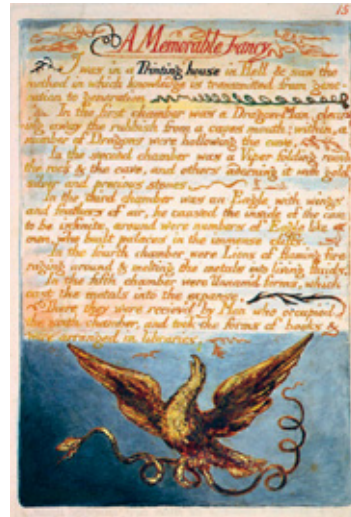 15
A Memorable Fancy
I was in a Printing house in Hell & saw the
method in which knowledge is transmitted from gene-
ration to generation
In the first chamber was a Dragon-Man, clear-
ing away the rubbish from a caves mouth; within, a
number of Dragons were hollowing the cave,
In the second chamber was a Viper folding round
the rock & the cave, and others adorning it with gold
silver and precious stones.
In the third chamber was an Eagle with wings
and feathers of air, he caused the inside of the cave
to be infinite, around were numbers of Eagle like
men, who built palaces in the immense cliffs.
In the fourth chamber were Lions of flaming fire
raging around & melting the metals into living fluids.
In the fifth chamber were Unnam'd forms, which
cast the metals into the expanse.
There they were reciev'd by Men who occupied
the sixth chamber, and took the forms of books &
were arranged in libraries.